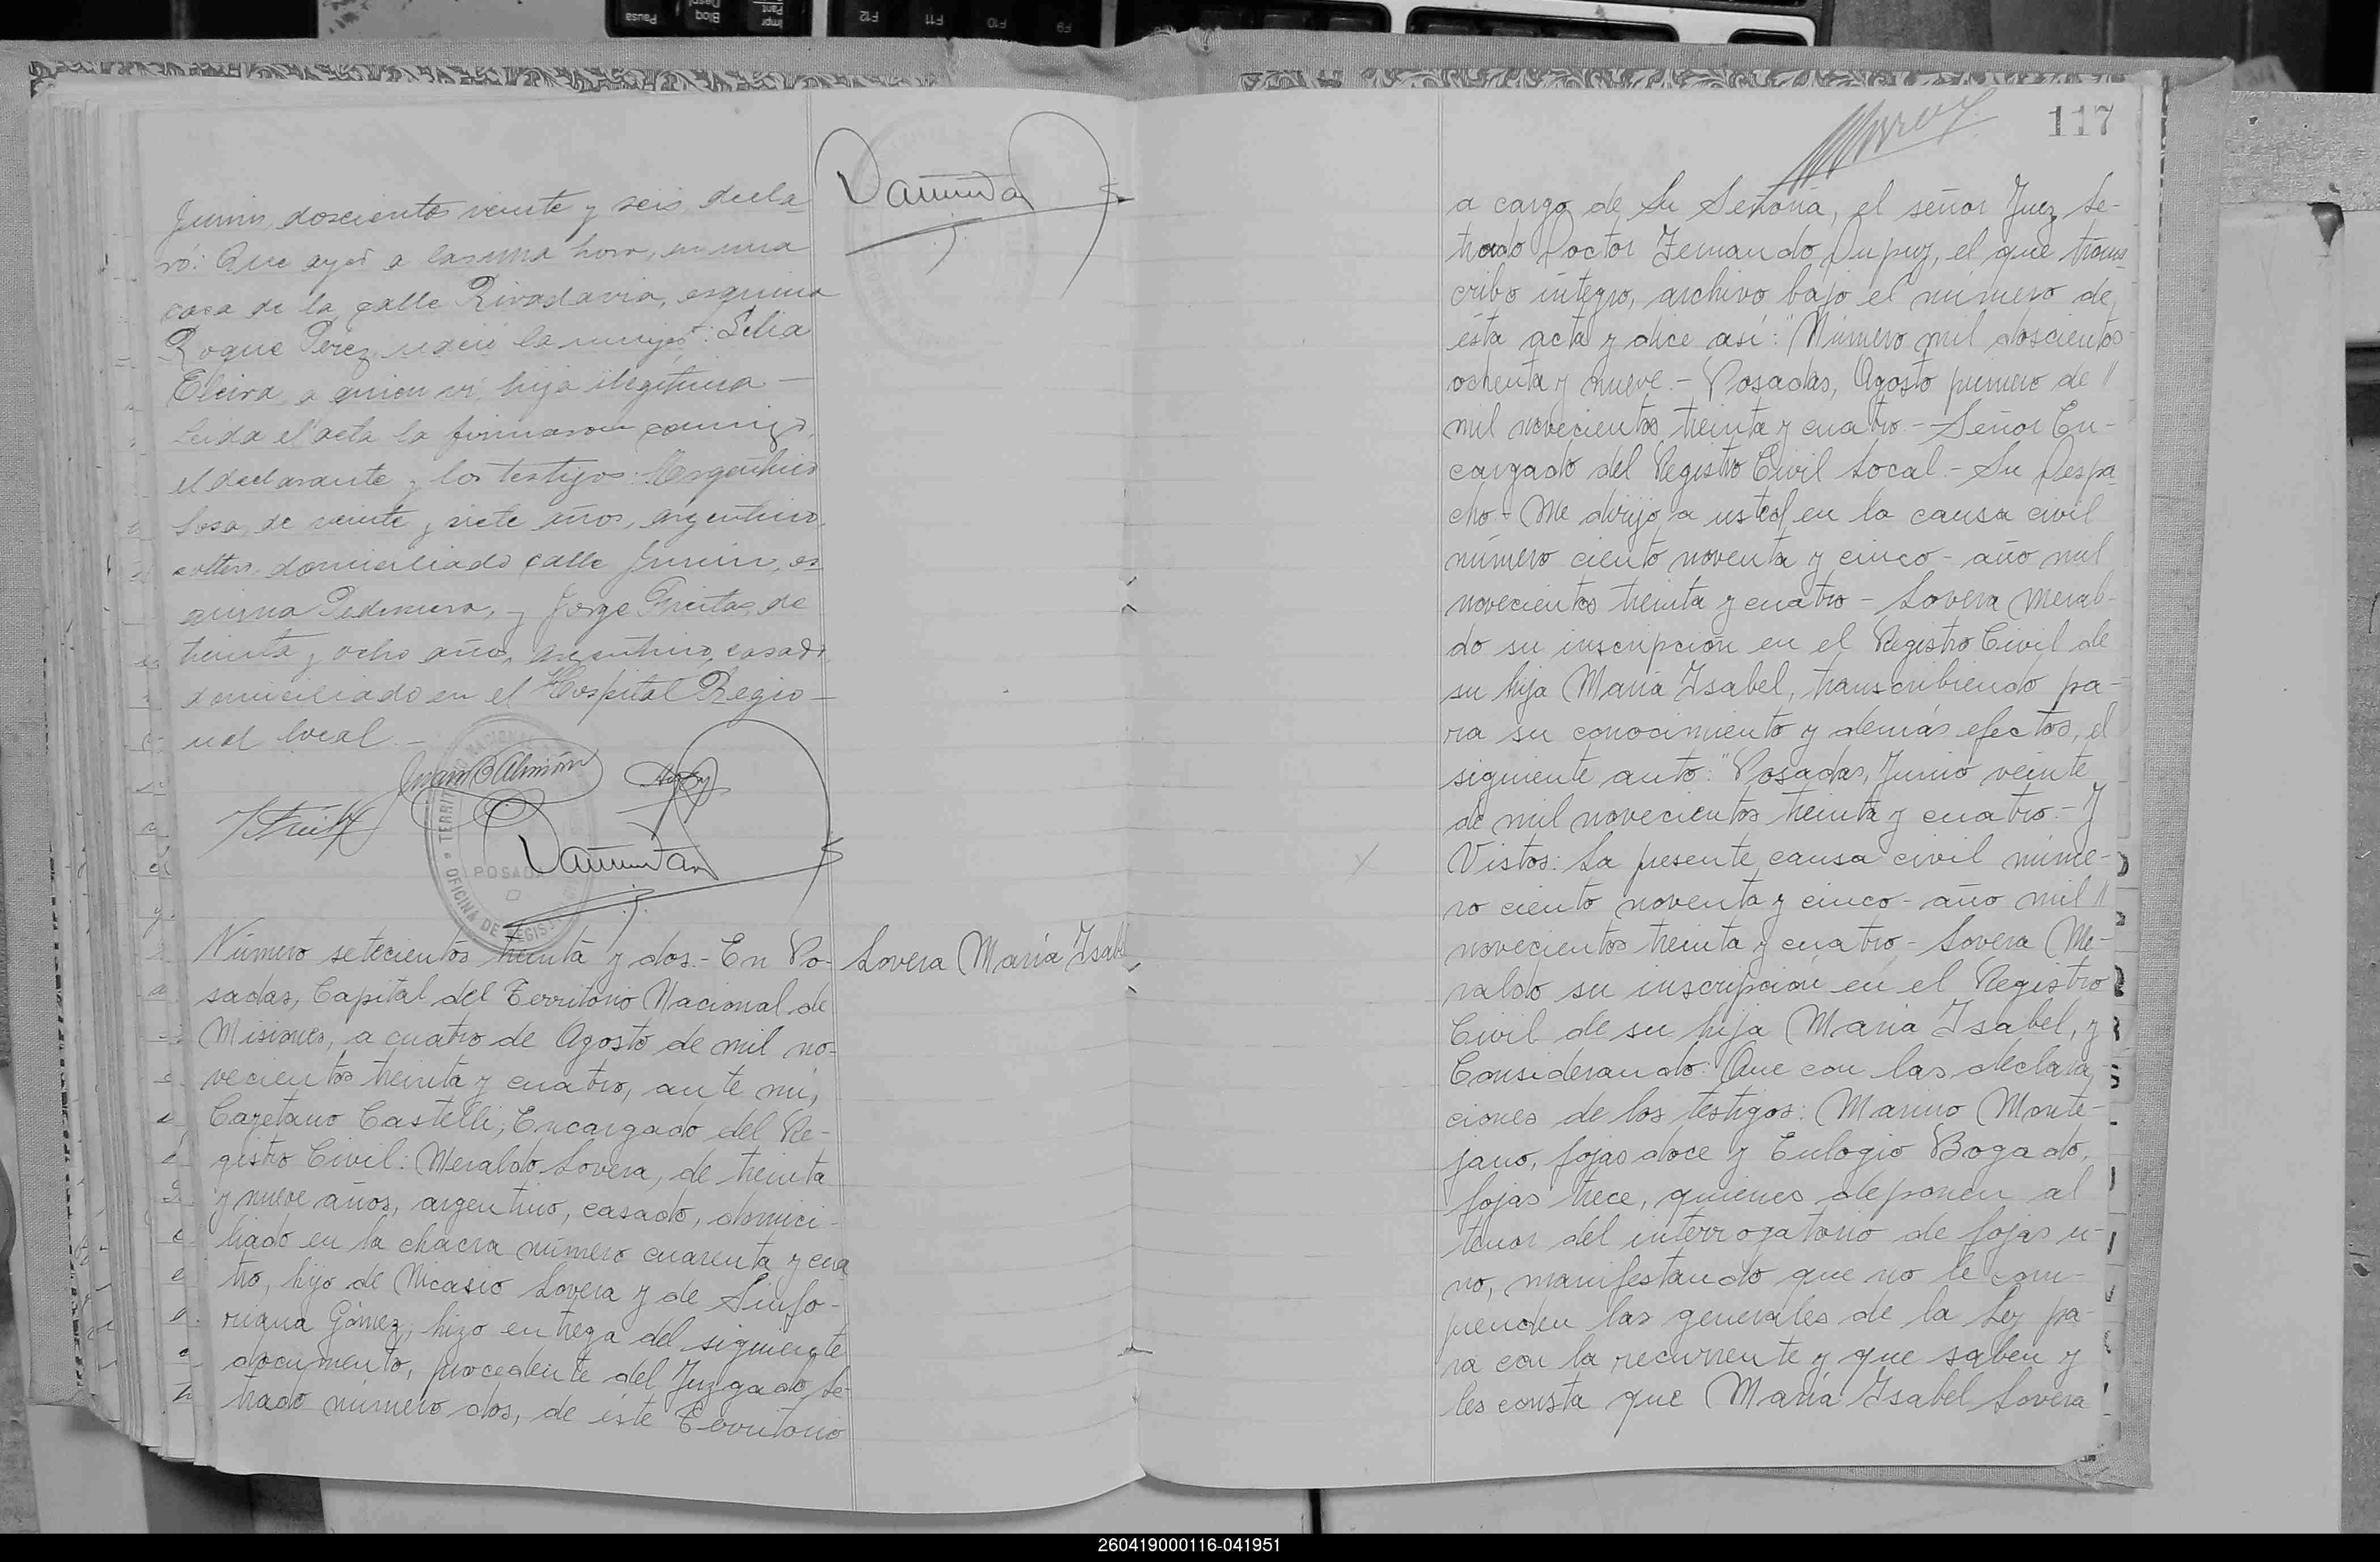 Junin, doscientos veinte y seis, decla-
ró: Que ayer a las una hora, en una
casa de la calle Rivadavia, esquina
Roque Perez, nació la mujer: Lelia
Elcira, a quien vi, hija ilegitima —
Leida el acta la firmaron conmigo,
el declarante y los testigos: Argentino
Sosa, de veinte y siete años, argentino,
soltero, domiciliado calle Junin, es-
quina Pedernera, y Jorge Freitas, de
treinta y ocho años, argentino, casado,
domiciliado en el Hospital Regio-
nal local. —
POSADAS
OFICINA DE REGIS
Número setecientos treinta y dos.- En Po-
Lovera María Isabel
sadas, Capital del Territorio Nacional de
Misiones, a cuatro de Agosto de mil no-
vecientos treinta y cuatro, ante mi,
Cayetano Castelli, Encargado del Re-
gistro Civil: Meraldo Lovera, de treinta
y nueve años, argentino, casado, domici-
liado en la chacra número cuarenta y cua
tro, hijo de Nicasio Lovera y de Sinfo-
riana Gómez, hizo entrega del siguiente
documento, procedente del Juzgado Le-
trado número dos, de éste Territorio
117
a cargo de Su Señoria, el señor Juez Le-
trado Doctor Fernando Dupuy, el que trans-
cribo integro, archivo bajo el número de
ésta acta y dice así: "Número mil doscientos
ochenta y nueve.- Posadas, Agosto primero de //
mil novecientos treinta y cuatro.- Señor En-
cargado del Registro Civil Local.- Su Despa-
cho.- Me dirijo a usted en la causa civil
número ciento noventa y cinco - año mil
novecientos treinta y cuatro - Lovera Meral-
do su inscripción en el Registro Civil de
su hija María Isabel, transcribiendo pa-
ra su conocimiento y demás efectos, el
siguiente auto: "Posadas, Junio veinte
de mil novecientos treinta y cuatro.- Y
Vistos: La presente causa civil núme-
ro ciento noventa y cinco - año mil //
novecientos treinta y cuatro - Lovera Me-
raldo su inscripción en el Registro
Civil de su hija Maria Isabel, y
Considerando: Que con las declara-
ciones de los testigos: Marino Monte-
jano, fojas doce y Eulogio Bogado,
fojas trece, quienes deponen al
tenor del interrogatorio de fojas u-
no, manifestando que no le com-
prenden las generales de la Ley pa-
ra con la recurrente y que saben y
les consta que María Isabel Lovera
260419000116-041951